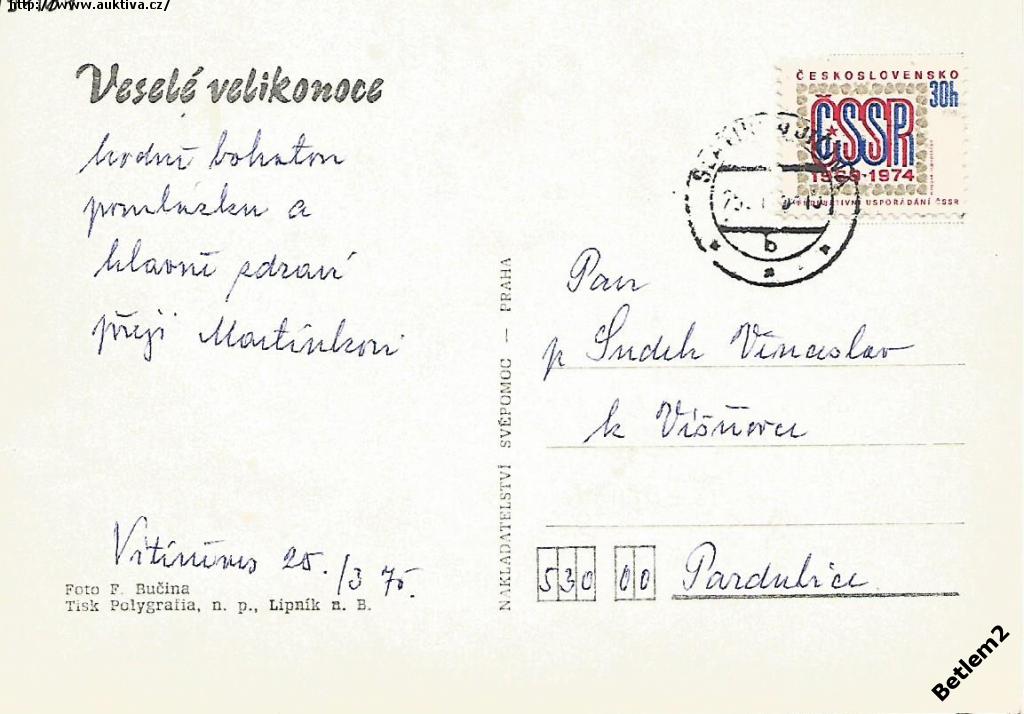 http://www.auktiva.cz/
Veselé velikonoce
hodně bohatou
pomlázku a
hlavně zdraví
přeji Martínkovi
Foto F. Bučina
Tisk Polygrafia, n. p., Lipník n. B.
25. /3 75.
NAKLADATELSTVÍ SVĚPOMOC — PRAHA
ČESKOSLOVENSKO
30h
ČSSR
1969·1974
USPOŘÁDÁNÍ ČSSR
b
Pan
p Sudek Vínceslav
k Višňovce
530 00 Pardubice
Betlem2